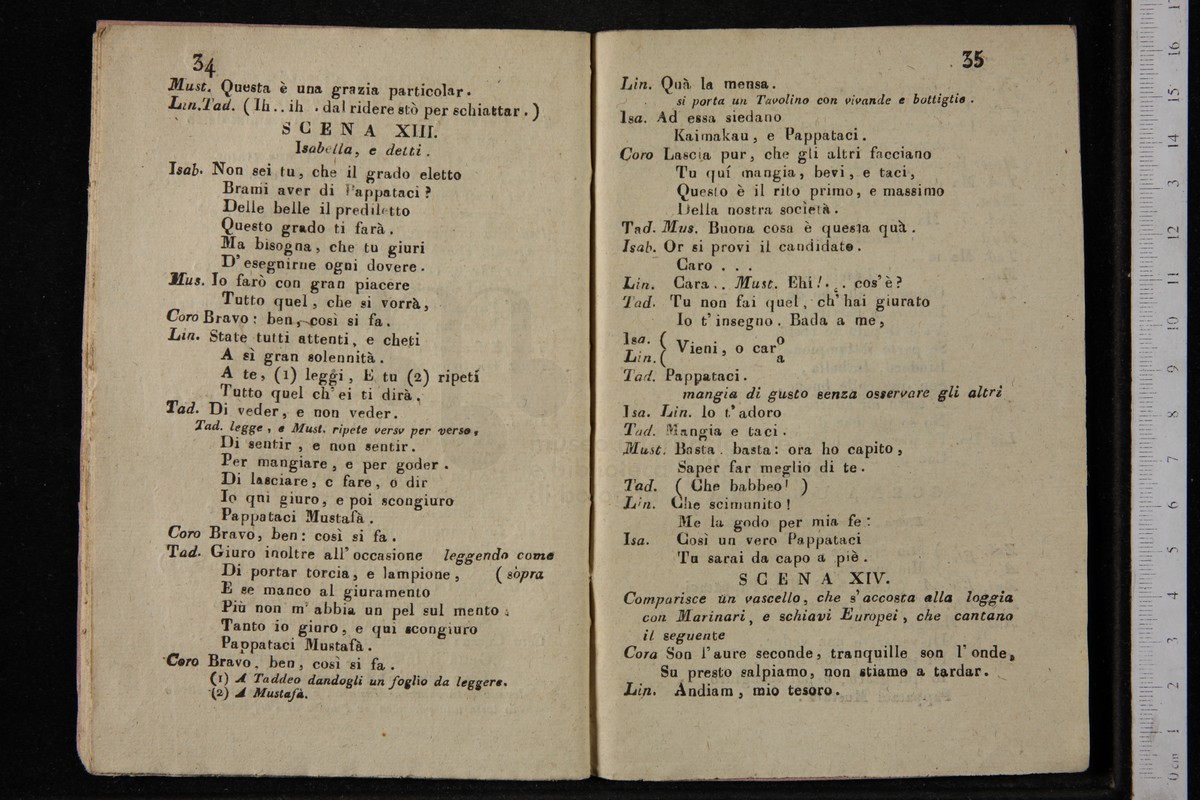 34
Must. Questa è una grazia particolar.
Lin.Tad. (Ih..ih . dal ridere stò per schiattar.)
SCENA XIII.
Isabella, e detti.
Isab. Non sei tu, che il grado eletto
Brami aver di Pappataci?
Delle belle il prediletto
Questo grado ti farà.
Ma bisogna, che tu giuri
D'esegnirne ogni dovere.
Mus. Io farò con gran piacere
Tutto quel, che si vorrà,
Coro Bravo: ben, così si fa.
Lin. State tutti attenti, e cheti
A sì gran solennità.
A te, (1) leggi, E tu (2) ripetí
Tutto quel ch'ei ti dirà,
Tad. Di veder, e non veder.
Tad. legge, e Must. ripete verso per verso,
Di sentir, e non sentir.
Per mangiare, e per goder.
Di lasciare, e fare, o dir
Io qui giuro, e poi scongiuro
Pappataci Mustafà.
Coro Bravo, ben: così si fa.
Tad. Giuro inoltre all'occasione leggendo come
Di portar torcia, e lampione, (sopra
E se manco al giuramento
Più non m'abbia un pel sul mento.
Tanto io giuro, e qui scongiuro
Pappataci Mustafà.
Coro Bravo. ben, così si fa.
(1) A Taddeo dandogli un foglio da leggere.
(2) A Mustafà.
35
Lin. Quà la mensa.
si porta un Tavolino con vivande e bottiglie.
Isa. Ad essa siedano
Kaimakau, e Pappataci.
Coro Lascia pur, che gli altri facciano
Tu quí mangia, bevi, e taci,
Questo è il rito primo, e massimo
Della nostra società.
Tad. Mus. Buona cosa è questa quà.
Isab. Or si provi il candidato.
Caro...
Lin. Cara.. Must. Ehi!... cos'è?
Tad. Tu non fai quel, ch'hai giurato
Io t'insegno. Bada a me,
Isa. (
Lin. ( Vieni, o car o
a
Tad. Pappataci.
mangia di gusto senza osservare gli altri
Isa. Lin. Io t'adoro
Tad. Mangia e taci.
Must. Basta. basta: ora ho capito,
Saper far meglio di te.
Tad. (Che babbeo!)
Lin. Che scimunito!
Me la godo per mia fe:
Isa. Così un vero Pappataci
Tu sarai da capo a piè.
SCENA XIV.
Comparisce un vascello, che s'accosta alla loggia
con Marinari, e schiavi Europei, che cantano
il seguente
Cora Son l'aure seconde, tranquille son l'onde,
Su presto salpiamo, non stiamo a tardar.
Lin. Andiam, mio tesoro.